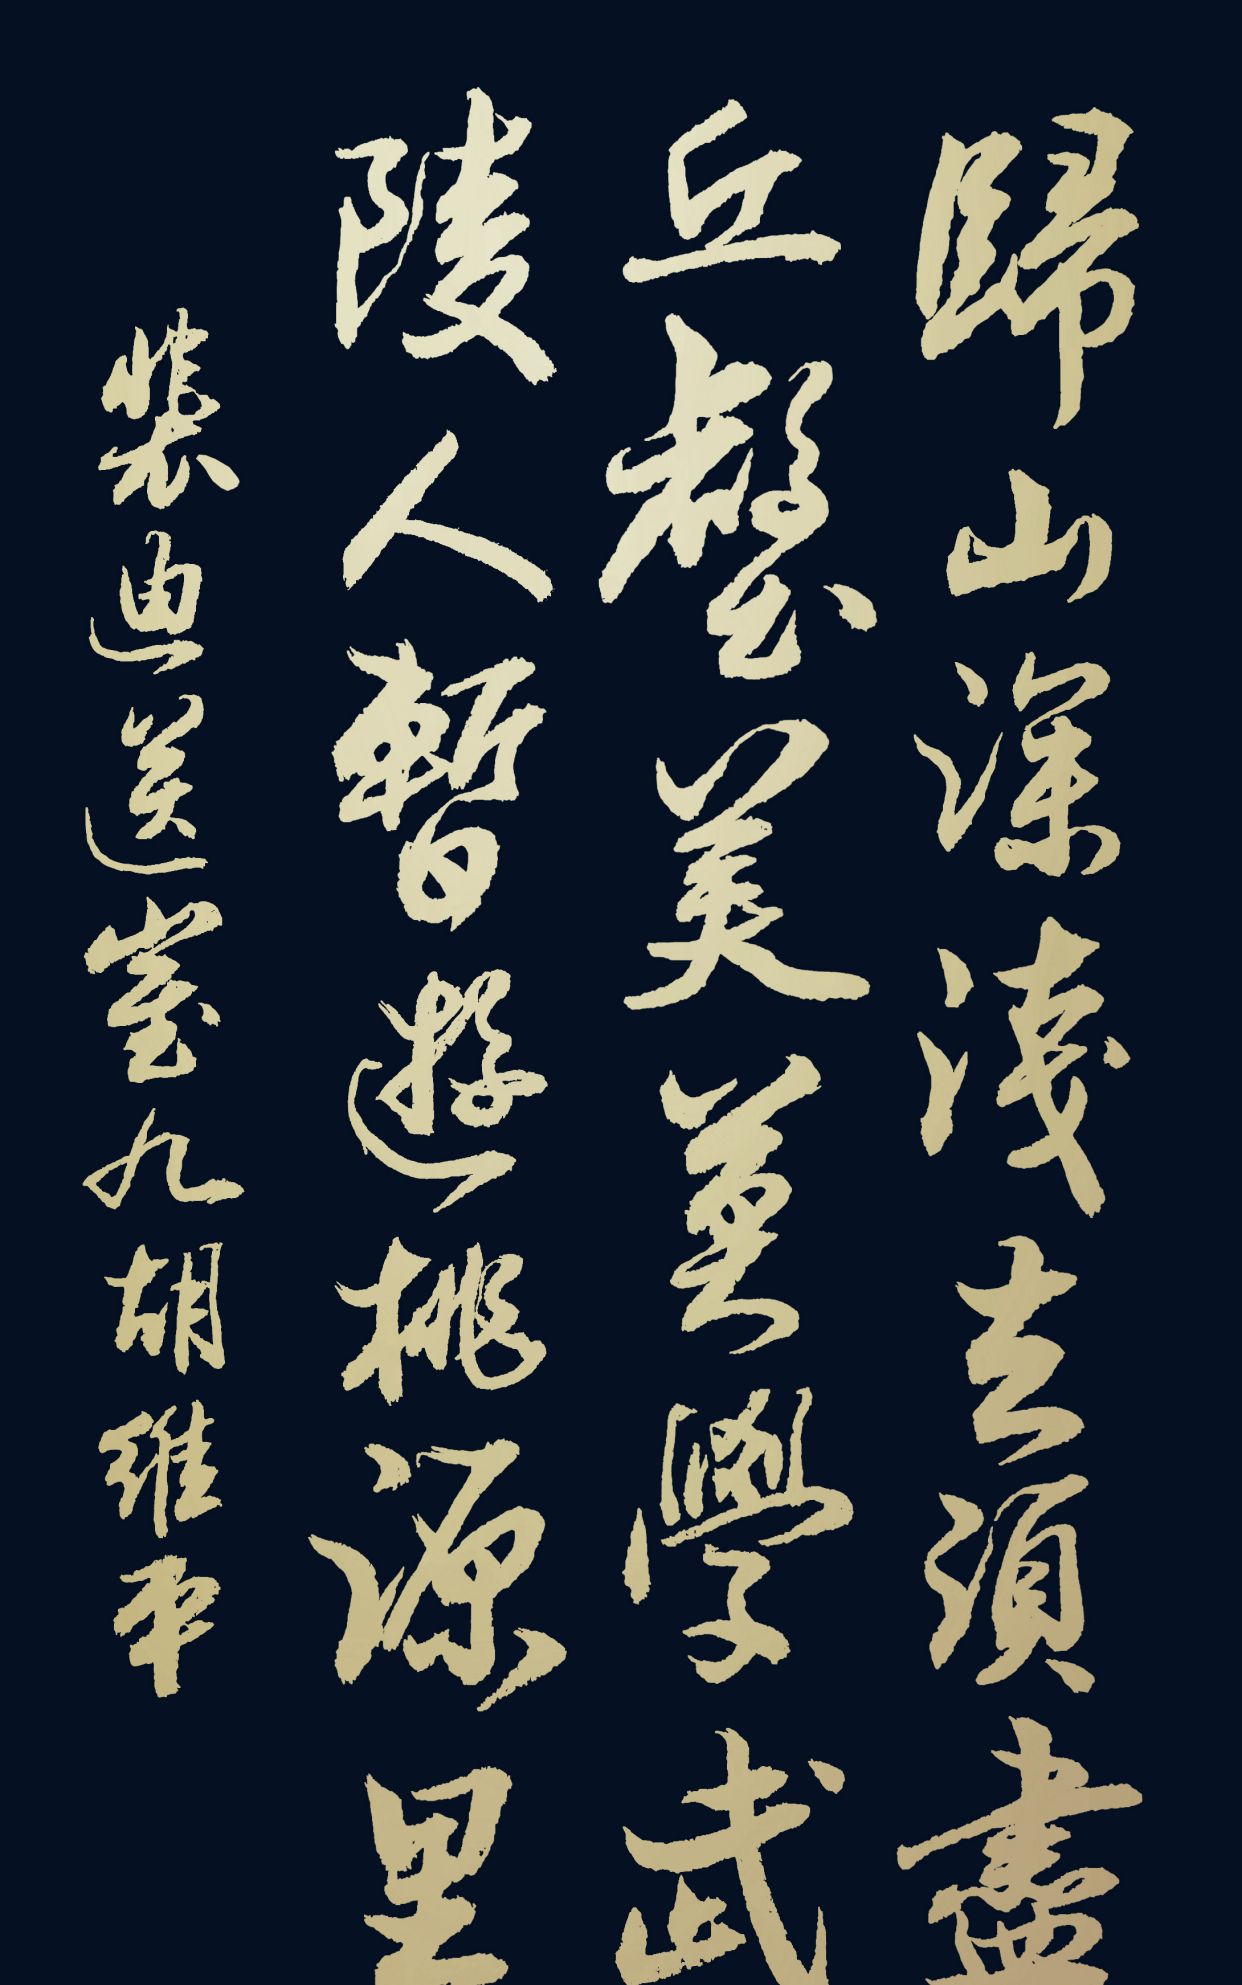 歸山深淺去須盡
丘壑美莫學武
陵人暫遊桃源里
裴迪送崔九胡維平